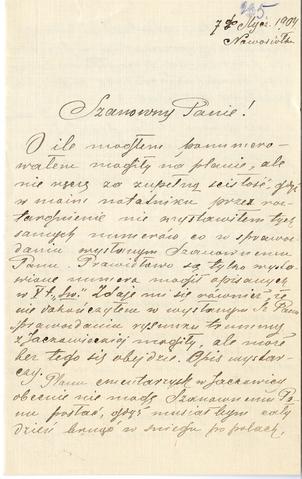 225
7 go Stycz. 1904
Nowosiółka
Szanowny Panie!
O ile mogłem ponumero-
wałem mogiły na planie, ale
nie ręczę za zupełną ścisłość, gdyż
w moim notatniku przez roz-
targnienie nie wystawiłem tych
samych numerów co w sprawo-
zdaniu wysłanym Szanownemu
Panu. Prawidłowo są tylko wysta-
wione numera mogił opisanych
w Zdaje mi się również, że
nie dołączyłem w wysłanym Sz. Panu
sprawozdaniu rysunku trumny
z Jackowickiej mogiły, ale może
bez tego się obejdzie. Opis wystar-
czy.
Planu cmentarzysk w Jackowicach
obecnie nie mogę Szanownemu Pa-
nu posłać, gdyż musiałbym cały
dzień brnąć w śniegu po polach,